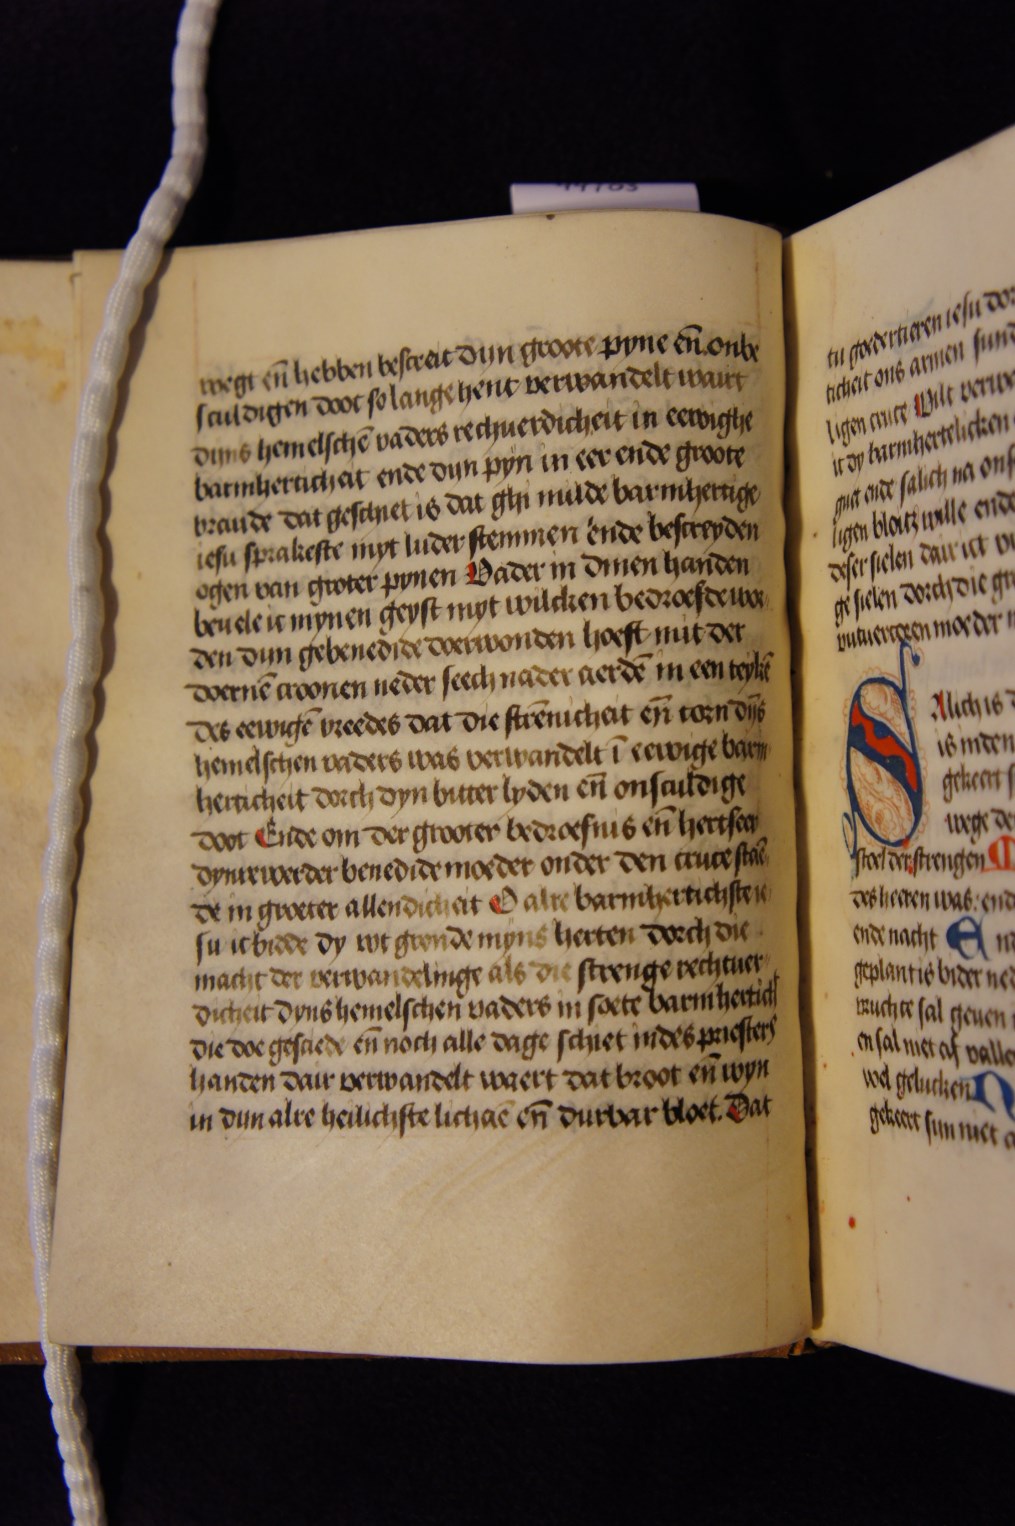 wegt en̄ hebben bescreit dijn groote pyne en̄ onbe
sculdigen doot so lange hent verwandelt wairt
dijns hemelschē vaders rechuerdicheit in eewighe
barmherticheit ende dijn pijn in eer ende groote
vraude dat geschiet is dat ghi milde barmhertige
iesu sprakeste myt luder stemmen ende bescreyden
ogen van groter pynen Vader in dinen handen
beuele ic mynen geyst myt wilcken bedroefde wor
den dijn gebenedide doerwonden hoeft mit der
doernē croonen neder seech nader aerdē in een teykē
des eewigē vreedes dat die strēnicheit en̄ torn dijs
hemelschen vaders was verwandelt ī eewige barm
herticheit dorch dyn bitter lyden en̄ onsculdige
doot Ende om der grooter bedroefnis en̄ hertseer
dynre werder benedide moeder onder den cruce staē
de in groeter allendicheit O alre barmhertichste ie
su ic bidde dy wt gronde myns herten dorch die
macht der verwandelinge als die strenge rechtuer
dicheit dyns hemelschen vaders in soete barmhertich
die doe gesciede en̄ noch alle dage schiet in des priesters
handen dair verwandelt waert dat broot en̄ wyn
in dijn alre heilichste lichāē en̄ durbar bloet. Dat
tu goedertieren iesu
ticheit ons armen sund
ligen cruce Wilt verwe
it dy barmhertelicken
guet ende salich na ons
ligen bloitz wille ende
deser sielen dair ict
ge sielen dorch die gr
vutuercoren moeder
Alich is
is inden
gekeert
wege de
stoel der strengen
des heeren was: end
ende nacht En
geplant is bider ned
vruchte sal geuen
en sal niet af valle
wel gelucken N
gekeert sijn niet